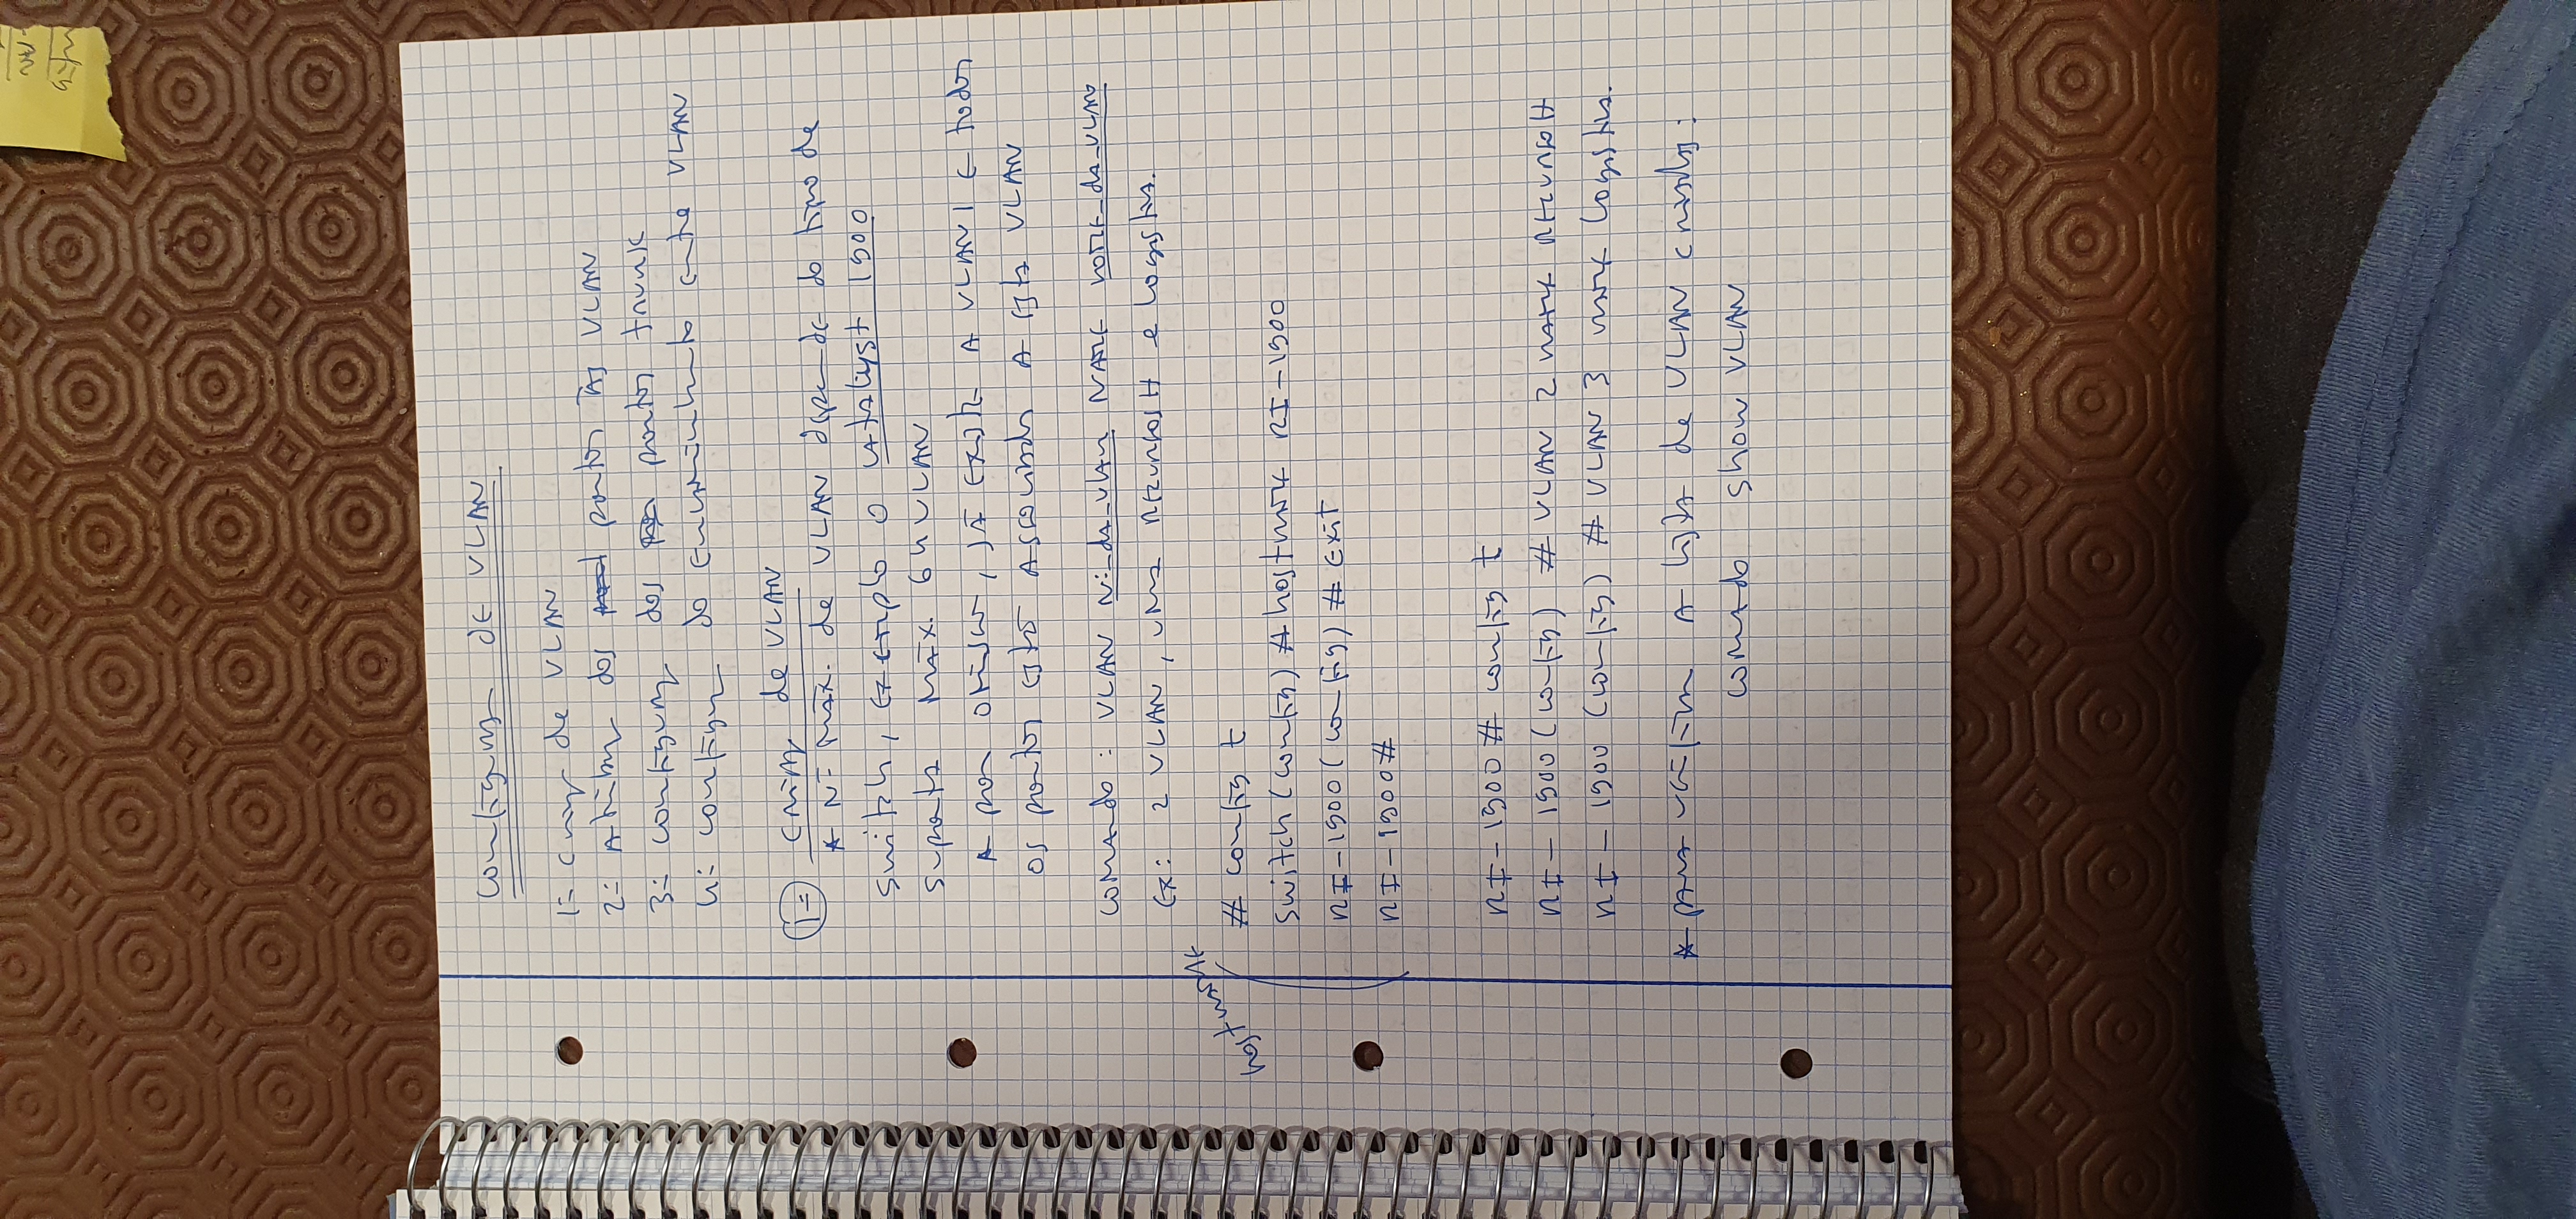 Configuração de VLAN
1= Criação de VLAN
2= Atribuição dos portos às VLAN
3= configuração dos portos trunk
4= configuração do encaminhamento entre VLAN
1= Criação de VLAN
* Nº Máx. de VLAN depende do tipo de
switch, exemplo o catalyst 1900
suporta Máx. 64 VLAN
* por omissão, já existe a VLAN1 e todos
os portos estão associados a esta VLAN
comando: VLAN Nº_da_vlan NAME nome_da_VLAN
Ex: 2 VLAN, uma recursosH e logística.
hostname
# config t
switch (config) # hostname RI-1900
RI-1900 (config) # Exit
RI-1900#
RI-1900 # config t
RI-1900 (config) # VLAN 2 name recursosH
RI-1900 (config) # VLAN 3 name logística.
* para verificar a lista de VLAN criadas:
comando show VLAN